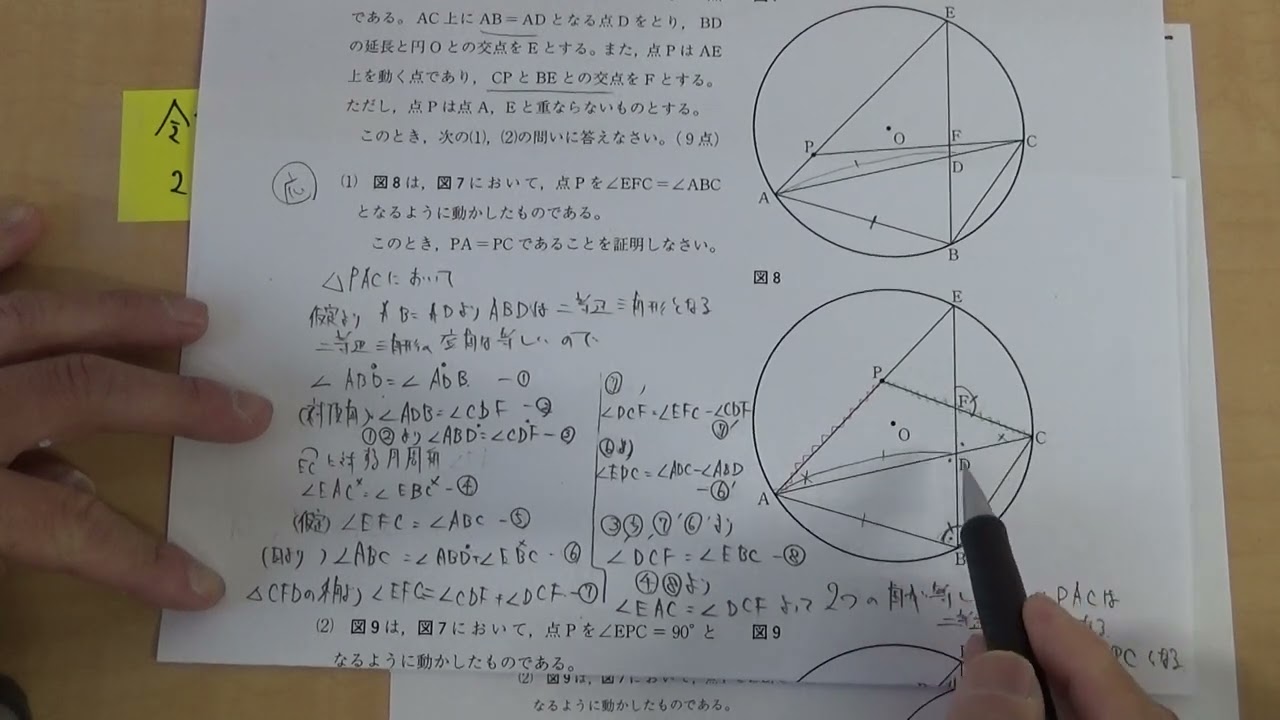 である。AC上にAB=ADとなる点Dをとり，BD
の延長と円Oとの交点をEとする。また，点PはAE
上を動く点であり，CPとBEとの交点をFとする。
ただし，点Pは点A，Eと重ならないものとする。
このとき，次の(1)，(2)の問いに答えなさい。(9点)
(1) 図8は，図7において，点Pを∠EFC=∠ABC
となるように動かしたものである。
このとき，PA=PCであることを証明しなさい。
△PACにおいて
仮定より AB=ADより ABDは二等辺三角形となる
二等辺三角形の底角は等しいので
∠ABD=∠ADB -①
(対頂角) ∠ADB=∠CDF -②
①②より ∠ABD=∠CDF -③
ECに対する円周角
∠EAC=∠EBC -④
(仮定) ∠EFC=∠ABC -⑤
(図より) ∠ABC=∠ABD+∠EBC -⑥
△CFDの外角より ∠EFC=∠CDF+∠DCF -⑦
⑦，
∠DCF=∠EFC-∠CDF
⑦'
⑥より
-⑥'
③⑤，⑦'⑥'より
∠DCF=∠EBC -⑧
④⑧より
∠EAC=∠DCF よって 2つの角が等
PACは
二等辺
PCとなる
(2) 図9は，図7において，点Pを∠EPC=90°と
なるように動かしたものである。
(2) 図9は，図7において，点
なるように動かしたものである。
E
P
O
F
C
D
A
B
図8
E
P
F
O
C
D
A
B
図9
応
令
2